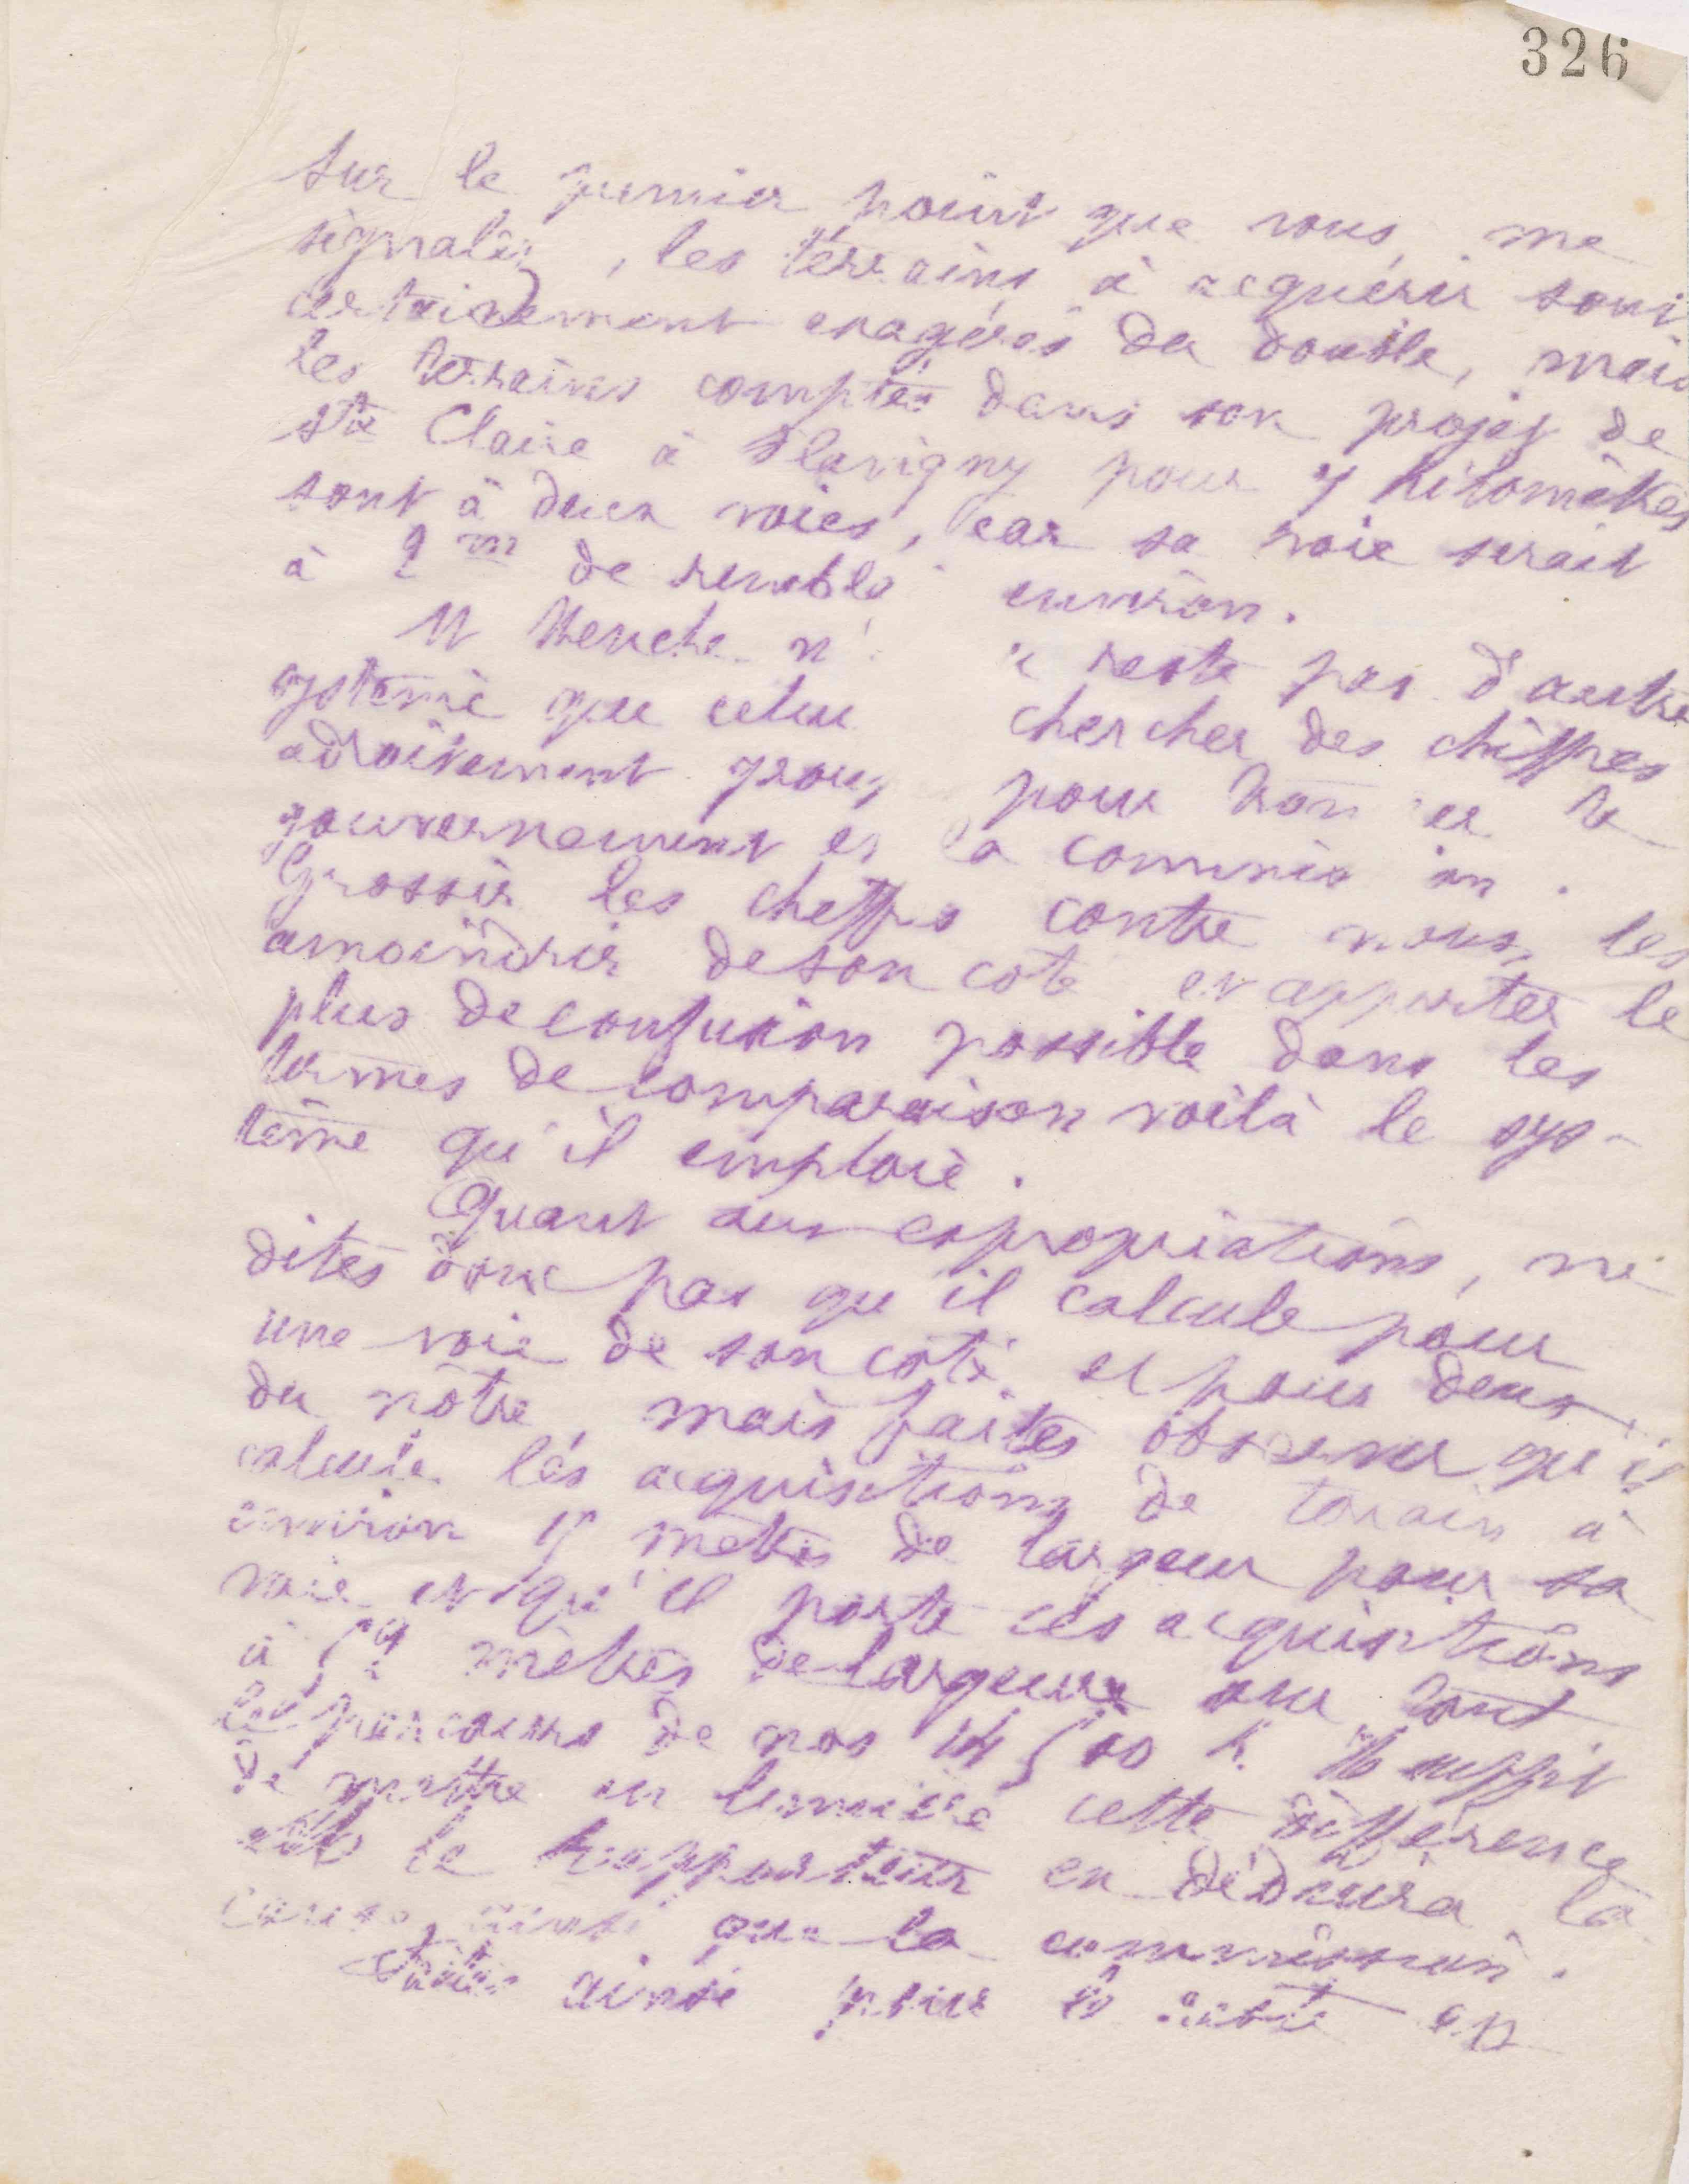 326
Sur le premier point que vous me
signalez, les terrains à acquérir sont
certainement exagérés du double, mais
les terrains comptés dans son projet de
Ste Claire à Flavigny pour 7 kilomètres
sont à deux voies, car sa voie serait
à 2 m de remblé environ.
M Menche n' reste pas d'autre
système que celui chercher des chiffres
adroitement pour
gouvernement et la commis on.
Grossir les cheffres contre nous, les
amoindrir de son coté et apporter le
plus de confusion possible dans les
termes de comparaison voilà le sys-
tême qu'il emploie.
Quant aux expropriations, ne
dites donc pas qu'il calcule pour
une voie de son coté et pour deux
du nôtre, mais faites observer qu'il
calcule les acquisitions de terrain à
environ mètres de largeur pour sa
voie et qu'il porte ces acquisitions
à mètres de largeur sur tout
le parcours de nos 14 500 k. Il suffit
de mettre en lumière cette différence
et le rapporteur en déduira la
cause, ainsi que la commission.
Faites ainsi pour le reste en